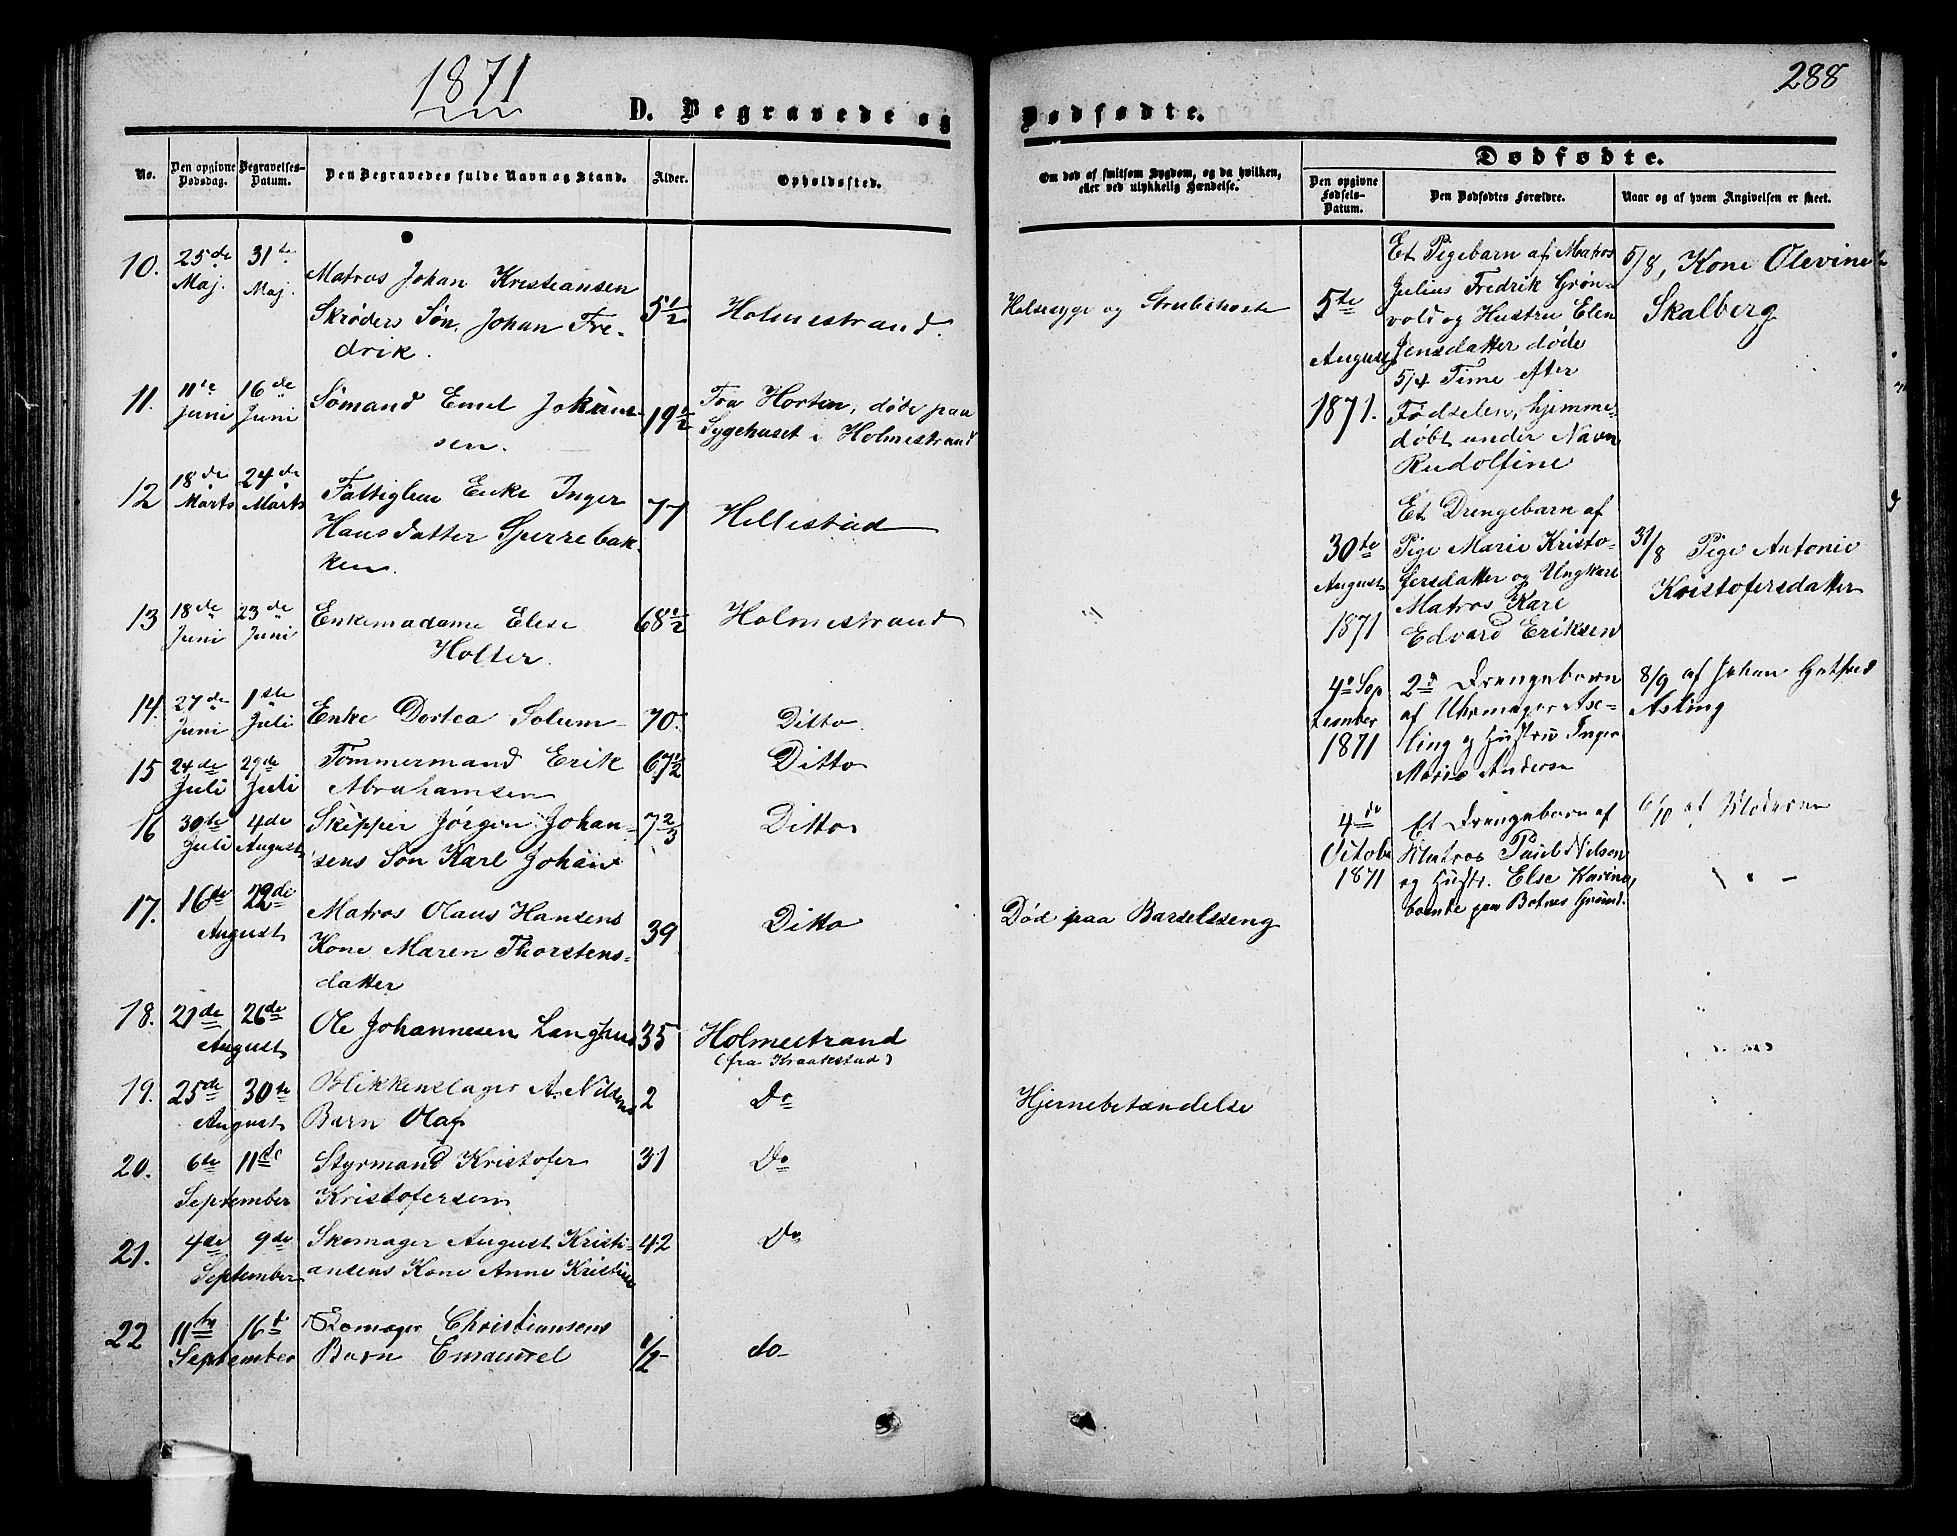 1871
288
D. Begravede og Dødfødte.
No.
Den opgivne Dødsdag.
Begravelses-Datum.
Den Begravedes fulde Navn og Stand.
Alder.
Opholdssted.
Om død af smitsom Sygdom, og da hvilken,
eller ved ulykkelig Hændelse.
Dødfødte.
Den opgivne Fødsels-Datum.
Den Dødfødtes Forældre.
Naar og af hvem Angivelsen er skeet.
10. 25de Maj. 31te Maj.
Matros Johan Kristiansen
Skrøders Søn, Johan Fre-
drik.
5 1/2 Holmestrand.
Halssyge og Strubehoste
11. 11te Juni 16de Juni
Sømand Emel Johann-
sen.
19 1/2 Fra Horten, døde paa
Sygehuset i Holmestrand
12 18de Marts 24de Marts
Fattiglem Enke Inger
Hansdatter Sperrebak-
ken.
77 Hillestad
13 18de Juni 23de Juni
Enkemadame Elise
Holter.
68 1/2 Holmestrand
14. 27de Juni 1ste Juli
Enke Dortea Solum 70. Ditto.
15 24de Juli 29de Juli
Tømmermand Erik
Abrahamsen
67 1/2 Ditto
16 30te Juli 4de August
Skipper Jørgen Johan-
sens Søn Karl Johan
7 2/3 Ditto
17. 16de 22de August
Matros Olaus Hansens
Kone Maren Thorstens-
datter
39 Ditto
Død paa Barselsseng
18. 21de 26de August
Ole Johannesen Langhus 35 Holmestrand
(fra Kraakstad)
19. 25de 30te August
Blikkenslager A. Nilsens
Barn Olaf
2 Do
Hjernebetændelse
20. 6te 11te September
Styrmand Kristofer
Kristofersen
31 Do
21. 4de 9de September
Skomager August Kristi-
ansens Kone Anne Kristine
42 Do
22 11te 16de September
Skomager Christiansens
Barn Emanuel
1/2 do
5te August 1871.
Et Pigebarn af Matros
Julius Fredrik Grøn-
vold og Hustru Elen
Jensdatter døde
5/4 Time efter
Fødselen, hjemme-
døbt under Navn
Rudolfine
5/8, Kone Olevine
Skalberg
30te August 1871
Et Drengebarn af
Pige Marie Kristo-
fersdatter og Ungkarl
Matros Karl
Edvard Eriksen
31/8 Pige Antonie
Kristofersdatter
4de September 1871
2de Drengebørn
af Uhrmager Ase-
ling og Hustru Inger
Marie Andersen
8/9 af Johan Gotfred
Asling
4de Octobe 1871
Et Drengebarn af
Matros Paul Nilsen
og Hustr. Else Karine,
boende paa Botnes Grund.
6/10 af Moderen